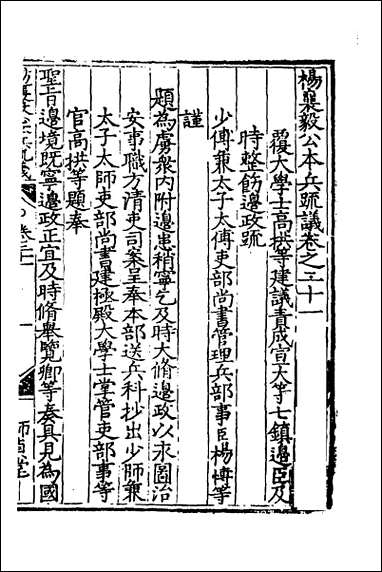 楊襄毅公本兵疏議卷之二十一
覆大學士高拱等建議責成宣大等七鎮邊臣及
時整飭邊政疏
少傅兼太子太傅吏部尚書管理兵部事臣楊博等
謹
題為虜衆内附邊患稍寧乞及時大脩邊政以永圖治
安事職方清吏司案呈奉本部送兵科抄出少師兼
太子太師吏部尚書建極殿大學士掌管吏部事等
官高拱等題奉
聖旨邊境既寧邊政正宜及時脩舉覽卿等奏具見為國
師貞堂